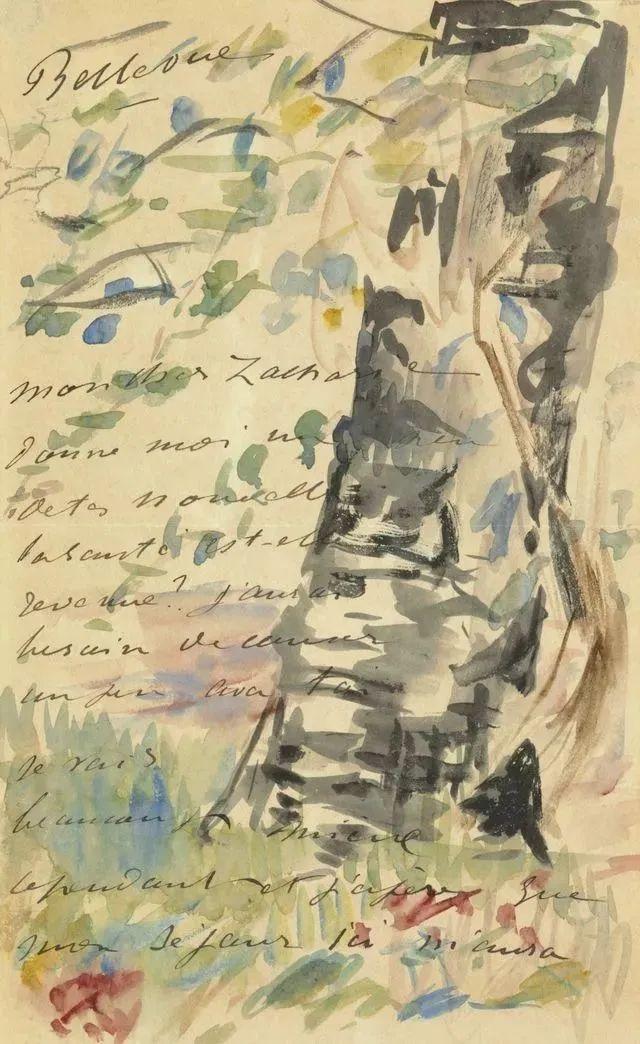 Bellevue
mon cher Zacharie
donne moi un
de tes nouvelles
ta santé est-elle
revenue? j'aurais
besoin de causer
un peu avec toi
je vais
beaucoup mieux
cependant et j'espère que
mon séjour ici m'aura